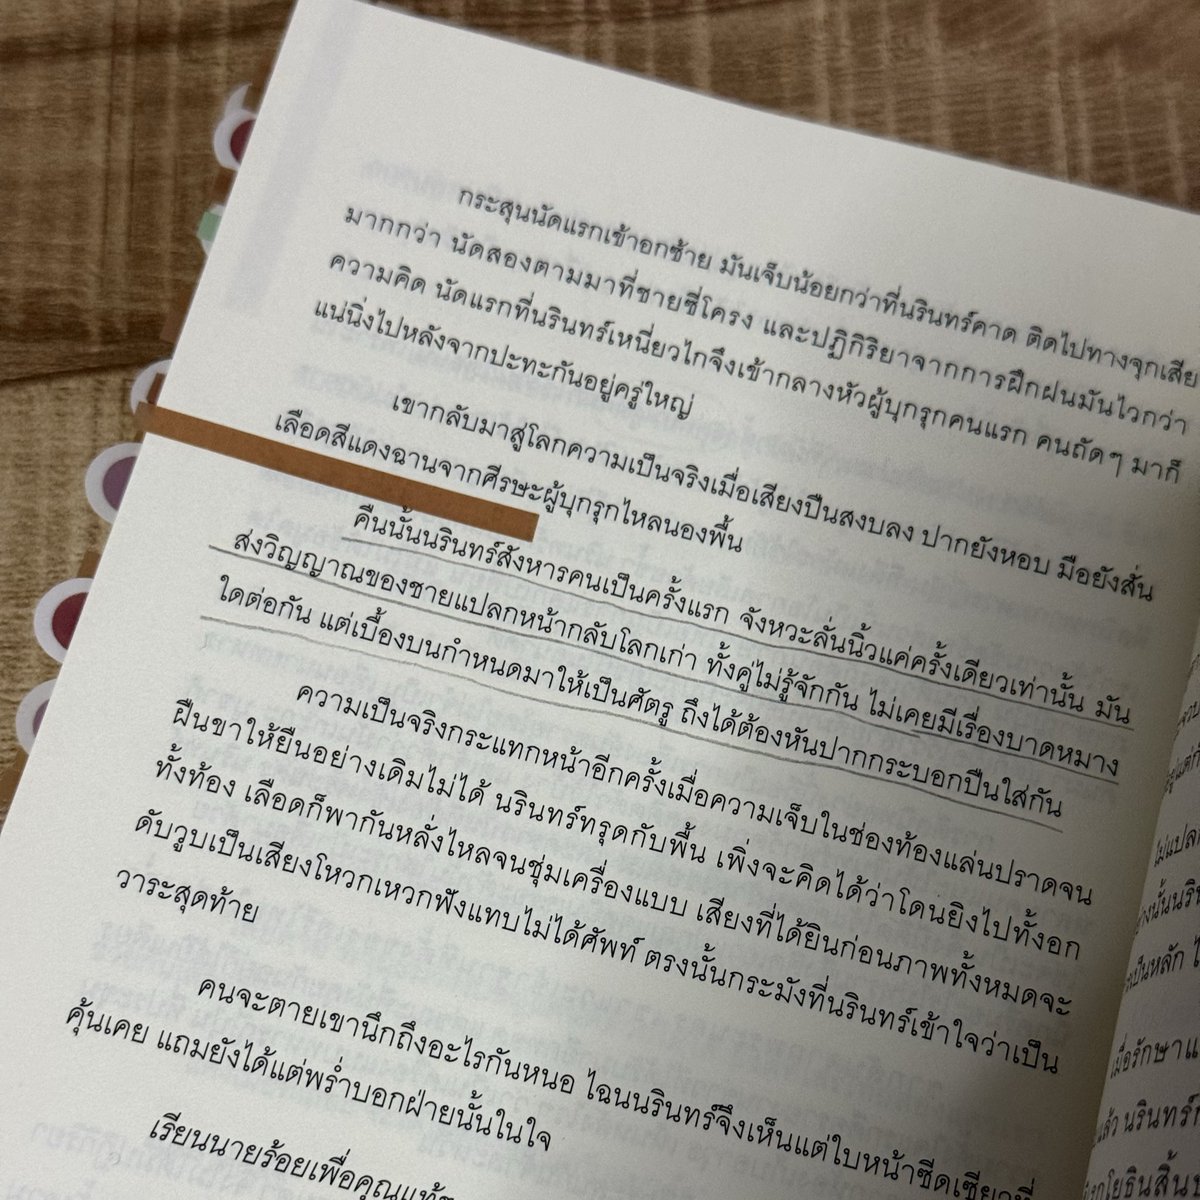 กระสุนนัดแรกเข้าอกซ้าย มันเจ็บน้อยกว่าที่นรินทร์คาด ติดไปทางจุกเสีย
มากกว่า นัดสองตามมาที่ชายซี่โครง และปฏิกิริยาจากการฝึกฝนมันไวกว่า
ความคิด นัดแรกที่นรินทร์เหนี่ยวไกจึงเข้ากลางหัวผู้บุกรุกคนแรก คนถัดๆ มาก็
แน่นิ่งไปหลังจากปะทะกันอยู่ครู่ใหญ่
เขากลับมาสู่โลกความเป็นจริงเมื่อเสียงปืนสงบลง ปากยังหอบ มือยังสั่น
เลือดสีแดงฉานจากศีรษะผู้บุกรุกไหลนองพื้น
คืนนั้นนรินทร์สังหารคนเป็นครั้งแรก จังหวะลั่นนิ้วแค่ครั้งเดียวเท่านั้น มัน
ส่งวิญญาณของชายแปลกหน้ากลับโลกเก่า ทั้งคู่ไม่รู้จักกัน ไม่เคยมีเรื่องบาดหมาง
ใดต่อกัน แต่เบื้องบนกำหนดมาให้เป็นศัตรู ถึงได้ต้องหันปากกระบอกปืนใส่กัน
ความเป็นจริงกระแทกหน้าอีกครั้งเมื่อความเจ็บในช่องท้องแล่นปราดจน
ฝืนขาให้ยืนอย่างเดิมไม่ได้ นรินทร์ทรุดกับพื้น เพิ่งจะคิดได้ว่าโดนยิงไปทั้งอก
ทั้งท้อง เลือดก็พากันหลั่งไหลจนชุ่มเครื่องแบบ เสียงที่ได้ยินก่อนภาพทั้งหมดจะ
ดับวูบเป็นเสียงโหวกเหวกฟังแทบไม่ได้ศัพท์ ตรงนั้นกระมังที่นรินทร์เข้าใจว่าเป็น
วาระสุดท้าย
คนจะตายเขานึกถึงอะไรกันหนอ ไฉนนรินทร์จึงเห็นแต่ใบหน้าซีดเซียวที่
คุ้นเคย แถมยังได้แต่พร่ำบอกฝ่ายนั้นในใจ
เรียนนายร้อยเพื่อคุณแท้ๆ